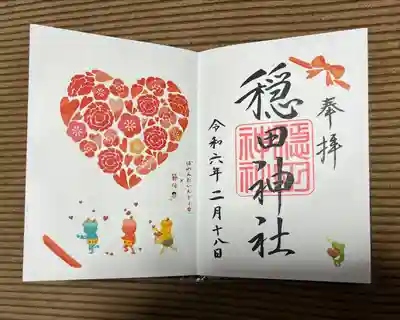 奉拝
穏田神社
穏田
神社
令和六年二月十八日